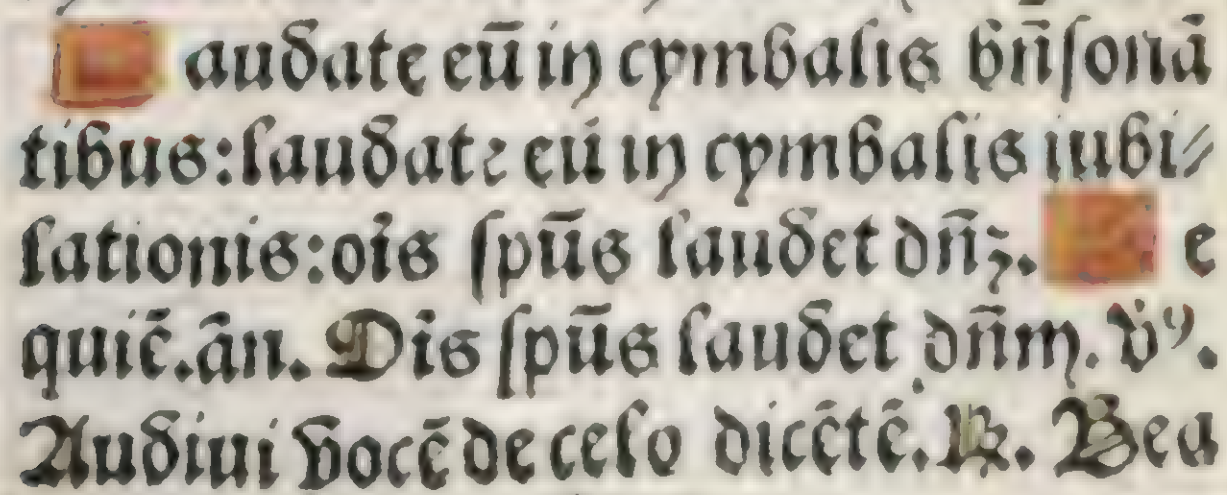 Laudate eū in cymbalis bn̄sonā
tibus: laudate eū in cymbalis iubi⸗
lationis: oīs spūs laudet dn̄ꝫ. Re
quiē. ān. Oīs spūs laudet dn̄m. v̓ꝰ.
Audiui vocē de celo dicētē. ℞. Bea